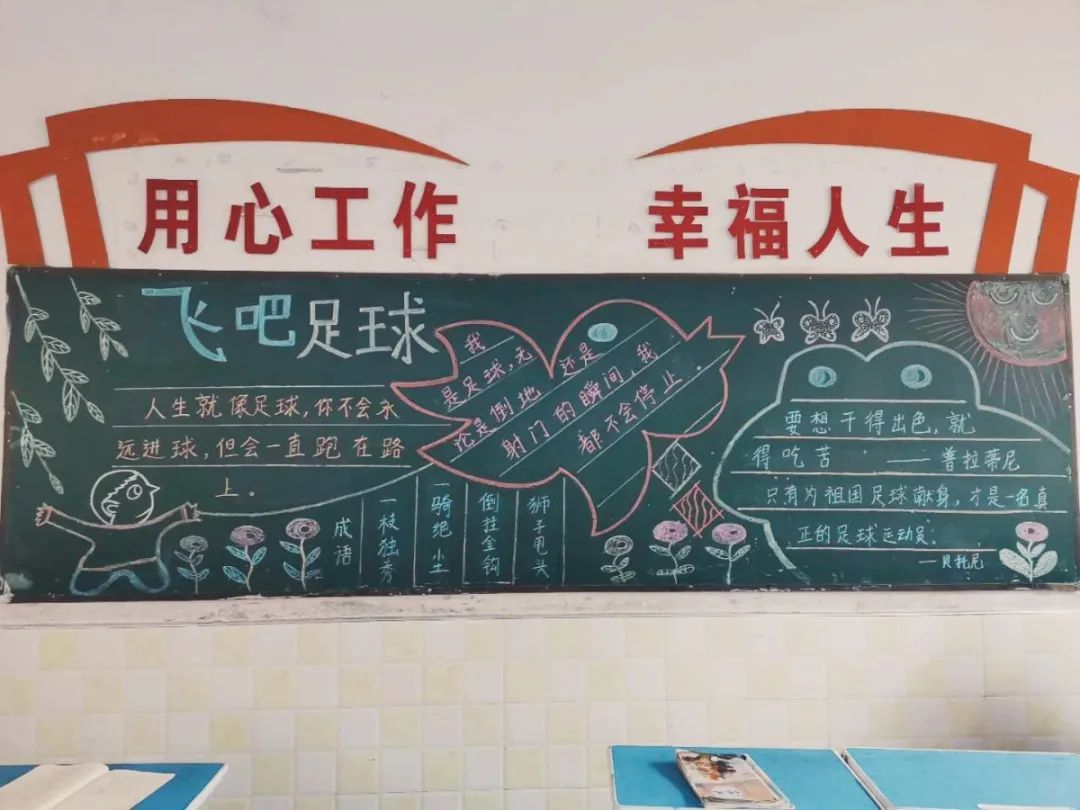 用心工作
幸福人生
飞吧足球
人生就像足球，你不会永
远进球，但会一直跑在路
上。
成语
一枝独秀
一骑绝尘
倒挂金钩
狮子甩头
我
是足球，无
论是倒地 还是
射门的瞬间，我
都不会停止。
要想干得出色，就
得吃苦 ——普拉蒂尼
只有为祖国足球献身，才是一名真
正的足球运动员。
—贝托尼